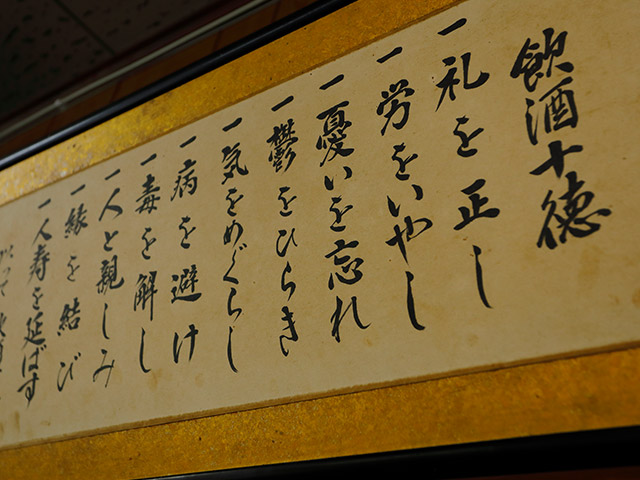 飲酒十徳
一礼を正し
一労をいやし
一憂いを忘れ
一鬱をひらき
一気をめぐらし
一病を避け
一毒を解し
一人と親しみ
一縁を結び
一人寿を延ばす